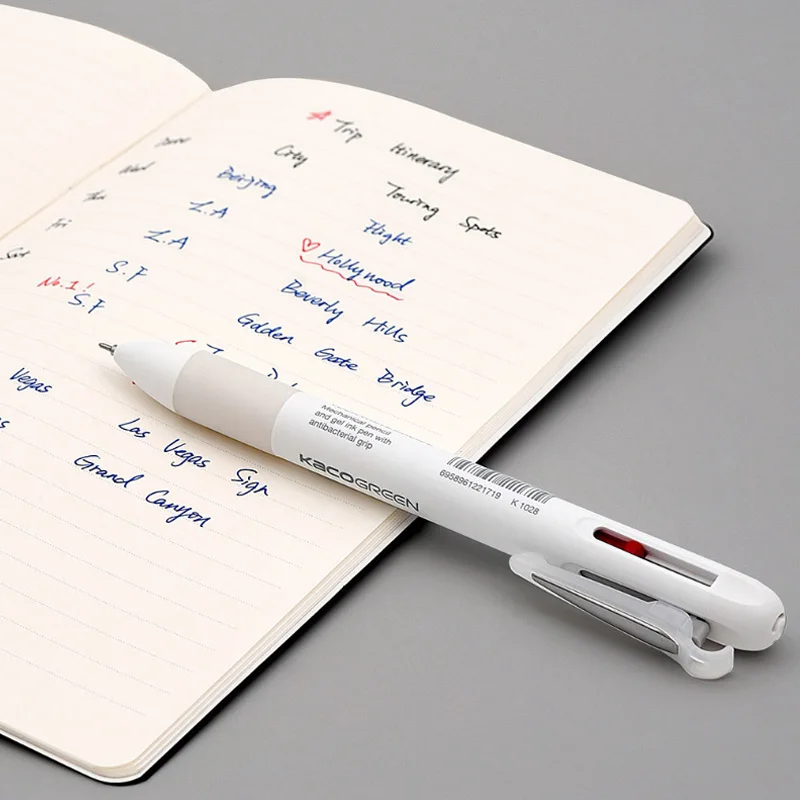 Trip Itinerary
City Touring Spots
Wed Beijing Flight
Thu L.A Hollywood
Fri L.A Beverly Hills
Sat S.F Golden Gate Bridge
No.1!
S.F
Vegas Las Vegas Sign
Grand Canyon
Mechanical pencil
and gel ink pen with
antibacterial grip
KACOGREEN
6958961221719 K 1028